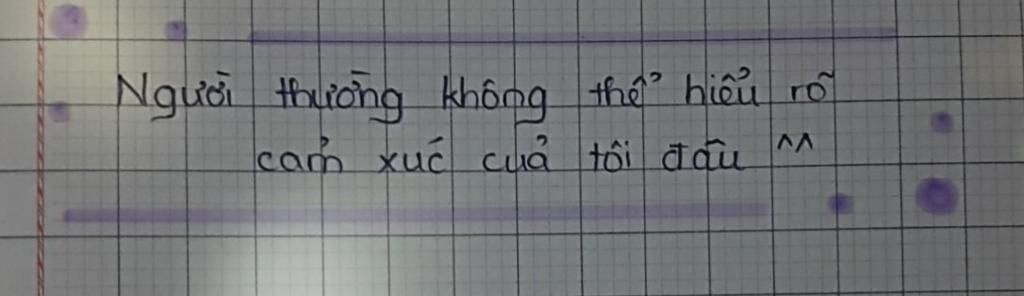 Người thường không thể hiểu rõ
cảm xúc của tôi đâu ^^